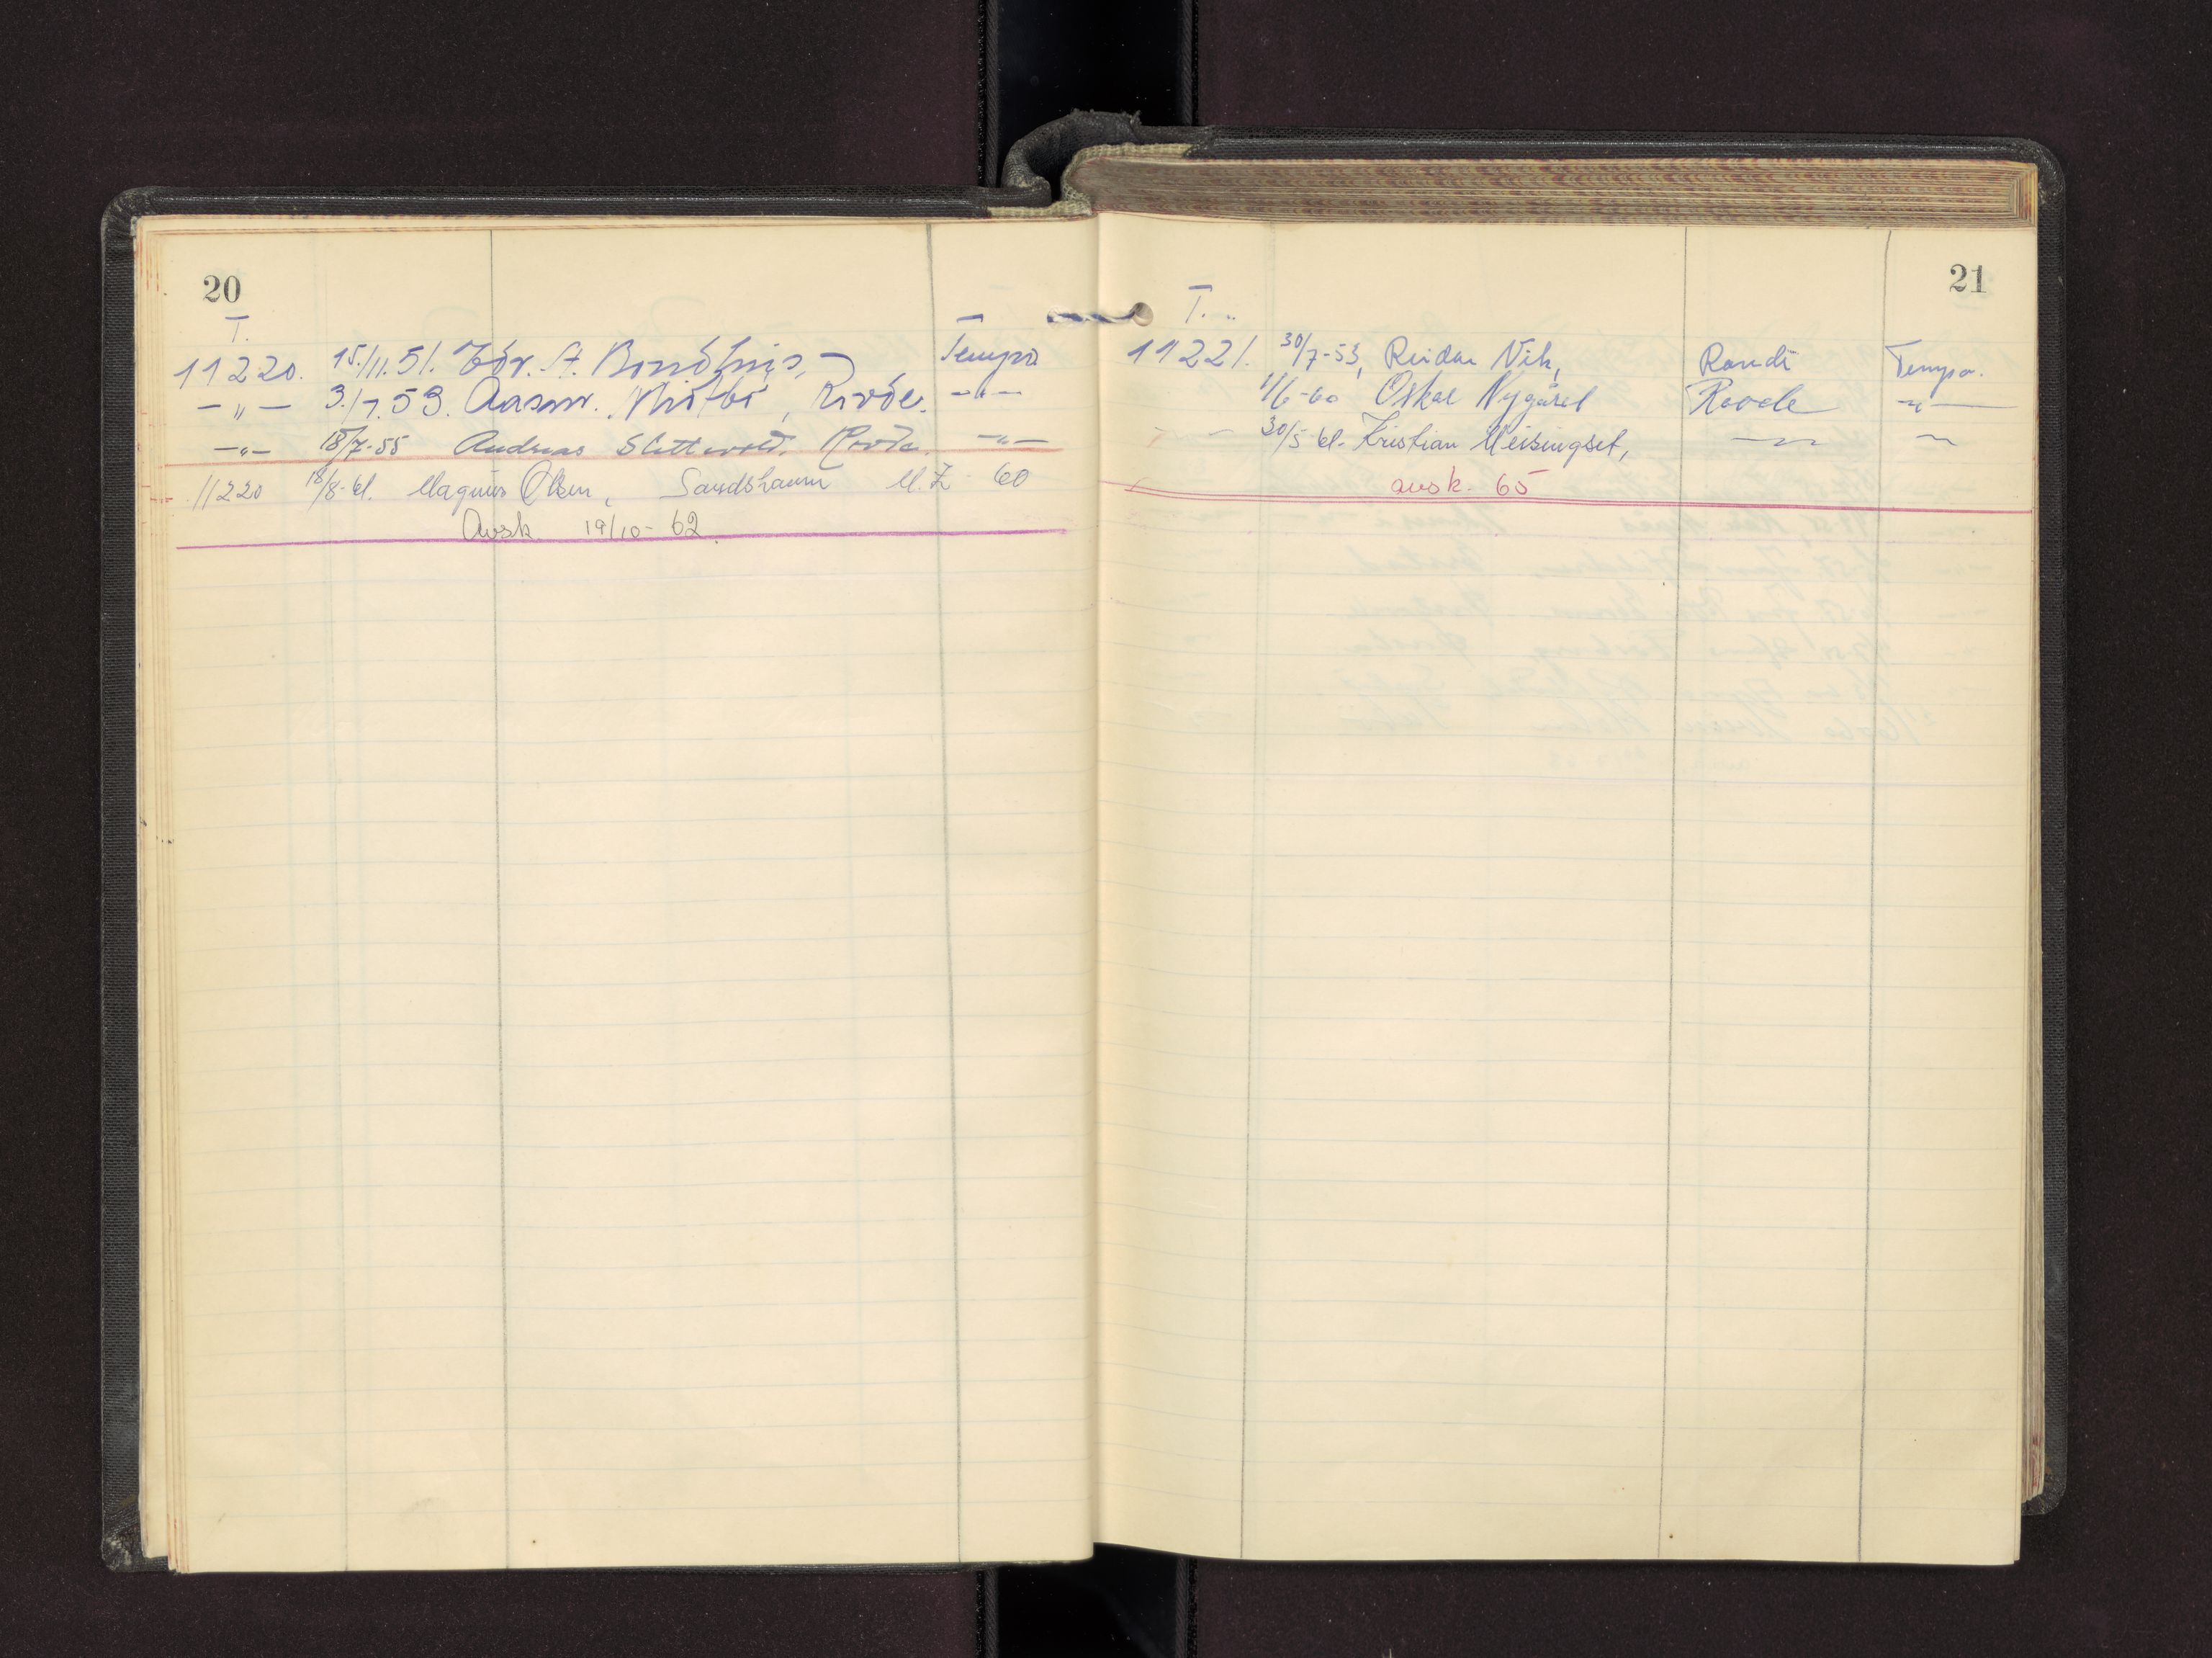 20
T.
11220. 15./11.51. Tor. A. Bondhus, Tempo
—„— 3./7.53. Aasm. Rovde. —„—
—„— 18/7-55 Andreas Slettvold. Rovde. —„—
11220 18/8-61. Magnus Olsen, Sandshamn M.Z. 60
Avsk. 19/10-62.
21
T. „
11221. 30/7-53, Reidar Vik, Raudi Tempo.
1/6-60 Oskar Nygård Rovde —„—
30/5 61. Kristian Meisingset,
avsk. 65